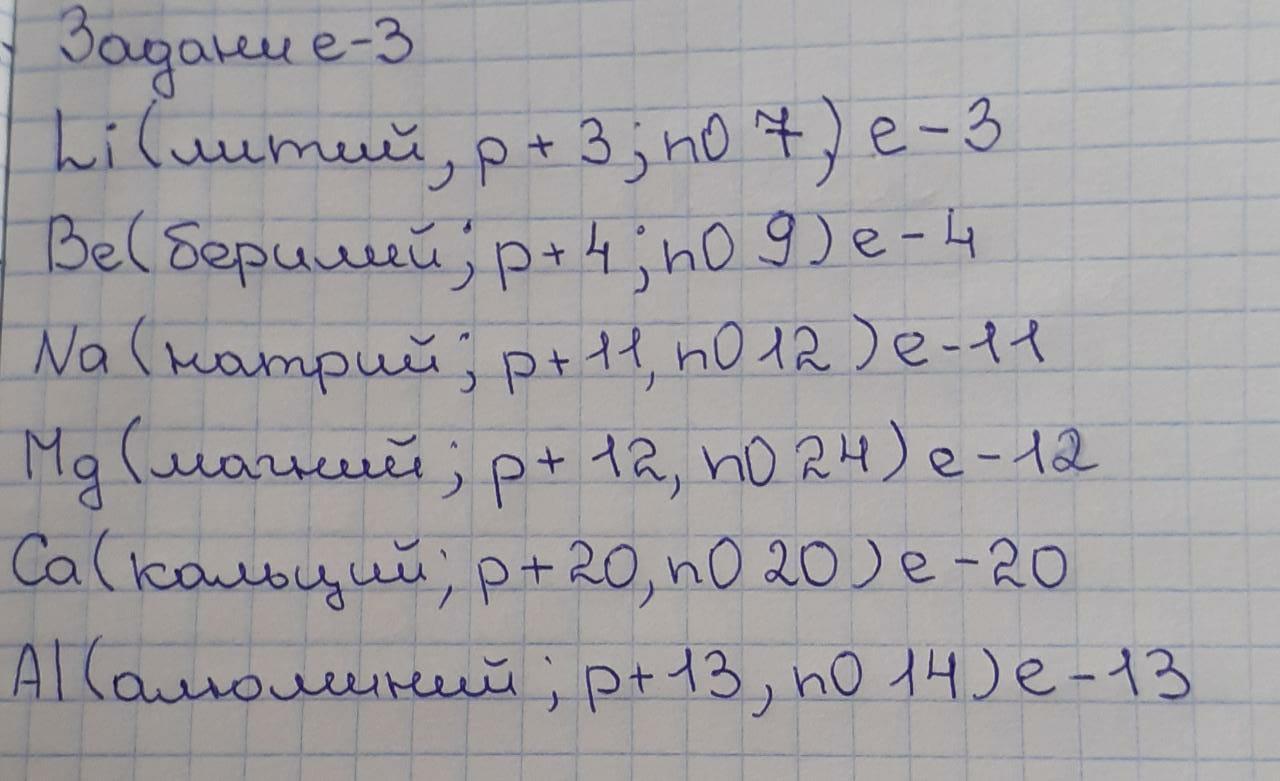 Задание-3
Li(литий, p+3; n0 7) e-3
Be(берилий; p+4; n0 9) e-4
Na(натрий; p+11, n0 12) e-11
Mg(магний; p+12, n0 24) e-12
Ca(кальций; p+20, n0 20) e-20
Al(алюминий; p+13, n0 14) e-13